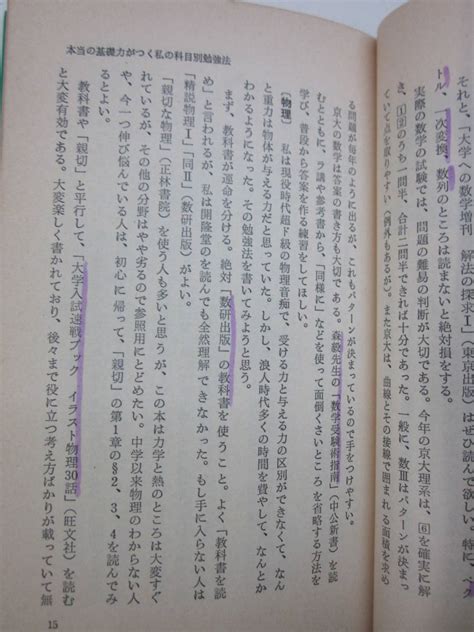 本当の基礎力がつく私の科目別勉強法
それと、大学への数学増刊 解法の探求Ⅰ」(東京出版)はぜひ読んで
トル、一次変換、数列のところは読まないと絶対損をする。
実際の数学の試験では、問題の難易の判断が大切である。今年の京大理系は、6を確実に解
き、12のうち一問半、合計二問半できれば十分であった。一般に、数Ⅲはパターンが決まっ
ていて点を取りやすい(例外もあるが)。また京大は、曲線とその接線で囲まれる面積を求め
る問題が毎年のように出るが、これもパターンが決まっているので手をつけやすい。
京大の数学は答案の書き方も大切である。森毅先生の「数学受験術指南」(中公新書)を読
むとともに、ラ講や参考書から、「同様に」などを使って面倒くさいところを省略する方法を
学び、普段から答案を作る練習をしてほしい。
〔物理〕 私は現役時代超ド級の物理音痴で、受ける力と与える力の区別ができなくて、なんか
と重力は物体が与える力だと思っていた。しかし、浪人時代多くの時間を費やして、なんとか
わかるようになった。その勉強法を書いてみようと思う。
まず、教科書が運命を分ける。絶対「数研出版」の教科書を使うこと。よく「教科書を読
め」と言われるが、私は開隆堂のを読んでも全然理解できなかった。もし手に入らない人は
「精説物理Ⅰ」「同Ⅱ」(数研出版)がよい。
「親切な物理」(正林書院)を使う人も多いと思うが、この本は力学と熱のところは大変すぐ
れているが、その他の分野はやや劣るので参照用にとどめたい。中学以来物理のわからない人
や、今一つ伸び悩んでいる人は、初心に帰って、「親切」の第1章の§2、3、4を読んでみ
るとよい。
教科書や「親切」と平行して、「大学入試速戦ブック イラスト物理30話」(旺文社)を読む
と大変有効である。大変楽しく書かれており、後々まで役に立つ考え方ばかりが載っていて無
15